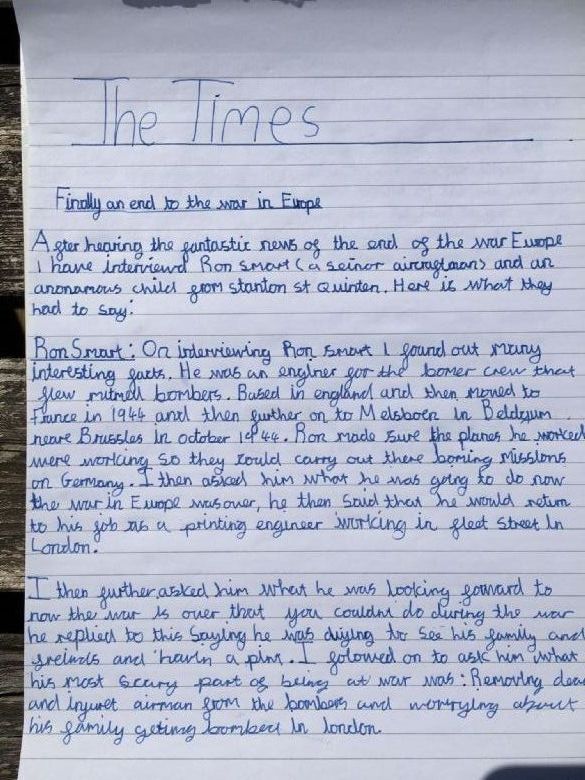 The Times
Finally an end to the war in Europe
After hearing the fantastic news of the end of the war Europe
I have interviewd Ron smart (a seinor aircraftman) and an
anonamous child from stanton st Quinten. Here is what they
had to say:
Ron Smart: On interviewing Ron smart I found out many
interesting facts. He was an enginer for the bomer crew that
flew mitmell bombers. Based in england and then moved to
France in 1944 and then further on to Melsboen in Beldgum
neare Brussles in october 1944. Ron made sure the planes he worked
were working so they could carry out there boming missions
on Germany. I then asked him what he was going to do now
the war in Europe was over, he then said that he would return
to his job as a printing engineer working in fleet street in
London.
I then further asked him what he was looking forward to
now the war is over that you couldnt do during the war
he replied to this saying he was duying to see his family and
freinds and havin a pint. I folowed on to ask him what
his most scary part of being at war was: Removing dead
and injuret airman from the bombers and worrying about
his family geting bombed in london.